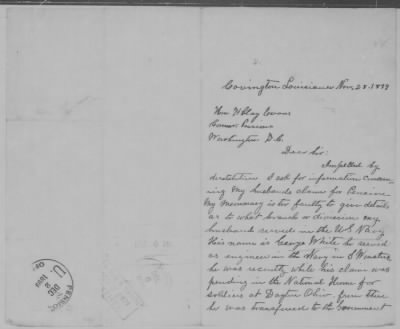 Covington Louisiana Nov. 28. 1899
Hon H Clay Evans
Comm. Pensions
Washington D.C.
Dear Sir:
Impelled by
destitution I ask for information concern
ing my husbands claim for Pension
My memory is too faulty to give details
as to what branch or division my
husband served in the U.S. Navy
His name is George White he served
as engineer in the Navy in
he was recently while his claim was
pending in the National Home for
soldiers at Dayton Ohio from there
he was transferred to the Government
PENSION
U
DEC
2
1899